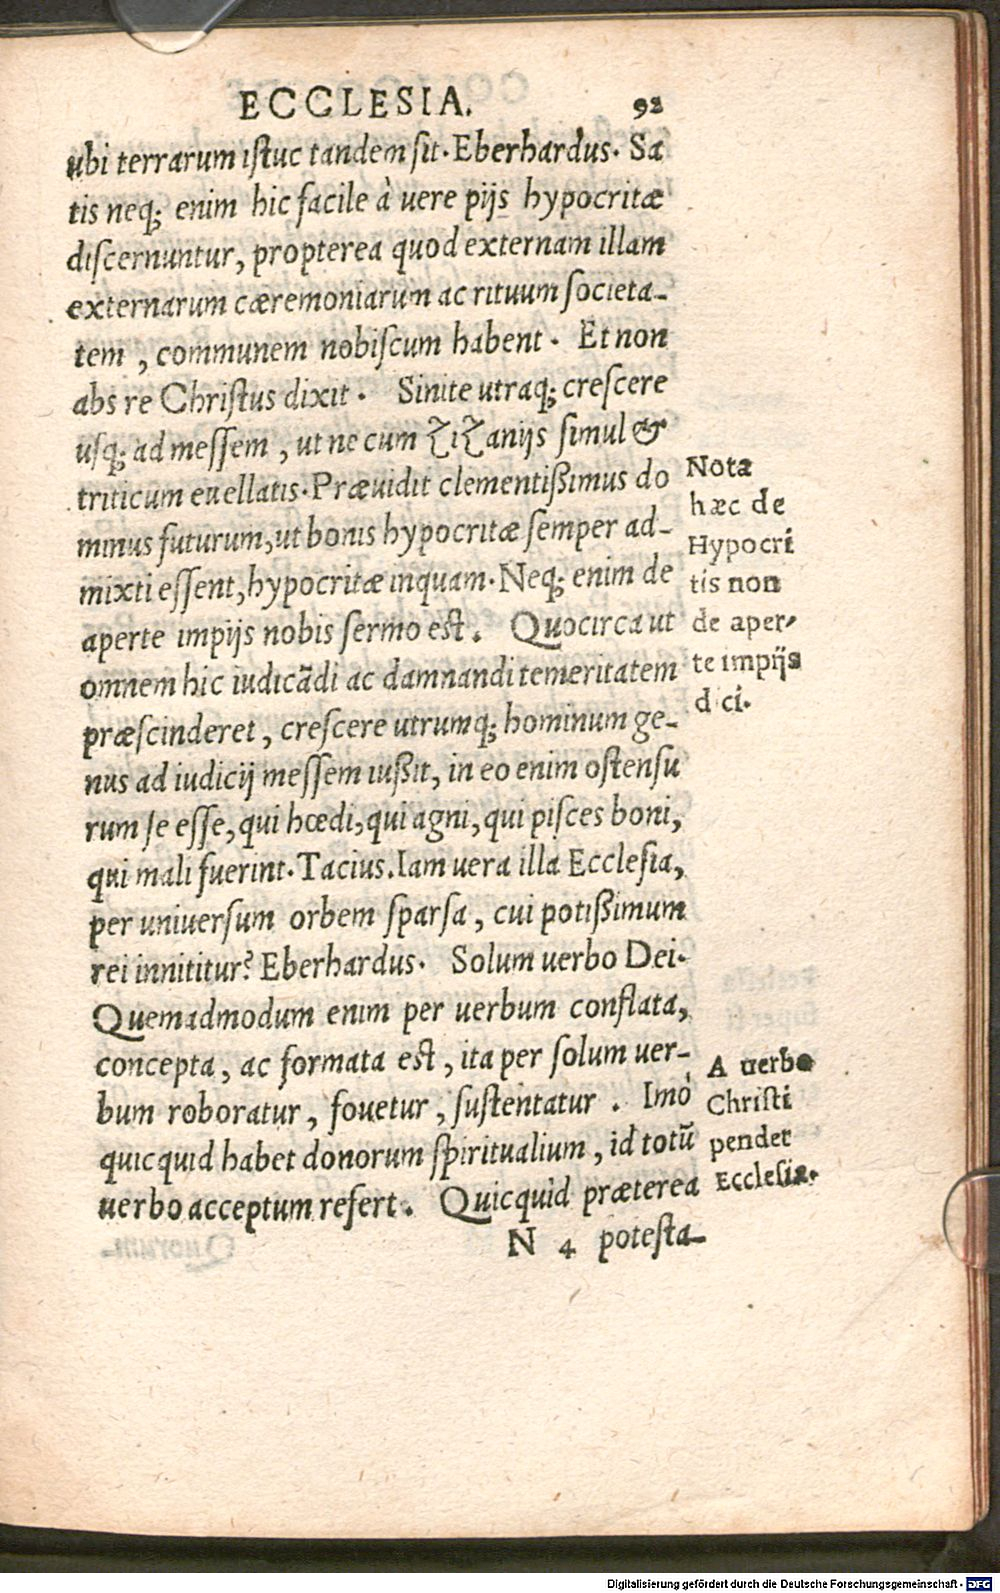 ECCLESIA. 92
ubi terrarum istuc tandem sit. Eberhardus. Sa
tis neq; enim hic facile à uere pijs hypocritæ
discernuntur, propterea quod externam illam
externarum cæremoniarum ac rituum societa-
tem, communem nobiscum habent. Et non
abs re Christus dixit. Sinite utraq; crescere
usq; ad messem, ut ne cum zizanijs simul &
triticum euellatis. Præuidit clementißimus do
minus futurum, ut bonis hypocritæ semper ad-
mixti essent, hypocritæ inquam. Neq; enim de
aperte impijs nobis sermo est. Quocirca ut
omnem hic iudicãdi ac damnandi temeritatem
præscinderet, crescere utrumq; hominum ge-
nus ad iudicij messem iußit, in eo enim ostensu
rum se esse, qui hœdi, qui agni, qui pisces boni,
qui mali fuerint. Tacius. Iam uera illa Ecclesia,
per uniuersum orbem sparsa, cui potißimum
rei innititur? Eberhardus. Solum uerbo Dei.
Quemadmodum enim per uerbum conflata,
concepta, ac formata est, ita per solum uer-
bum roboratur, fouetur, sustentatur. Imò
quicquid habet donorum spiritualium, id totũ
uerbo acceptum refert. Quicquid præterea
N 4 potesta-
Nota
hæc de
Hypocri
tis non
de aper-
te impijs
dici.
A uerbo
Christi
pendet
Ecclesia.
Digitalisierung gefördert durch die Deutsche Forschungsgemeinschaft - DFG